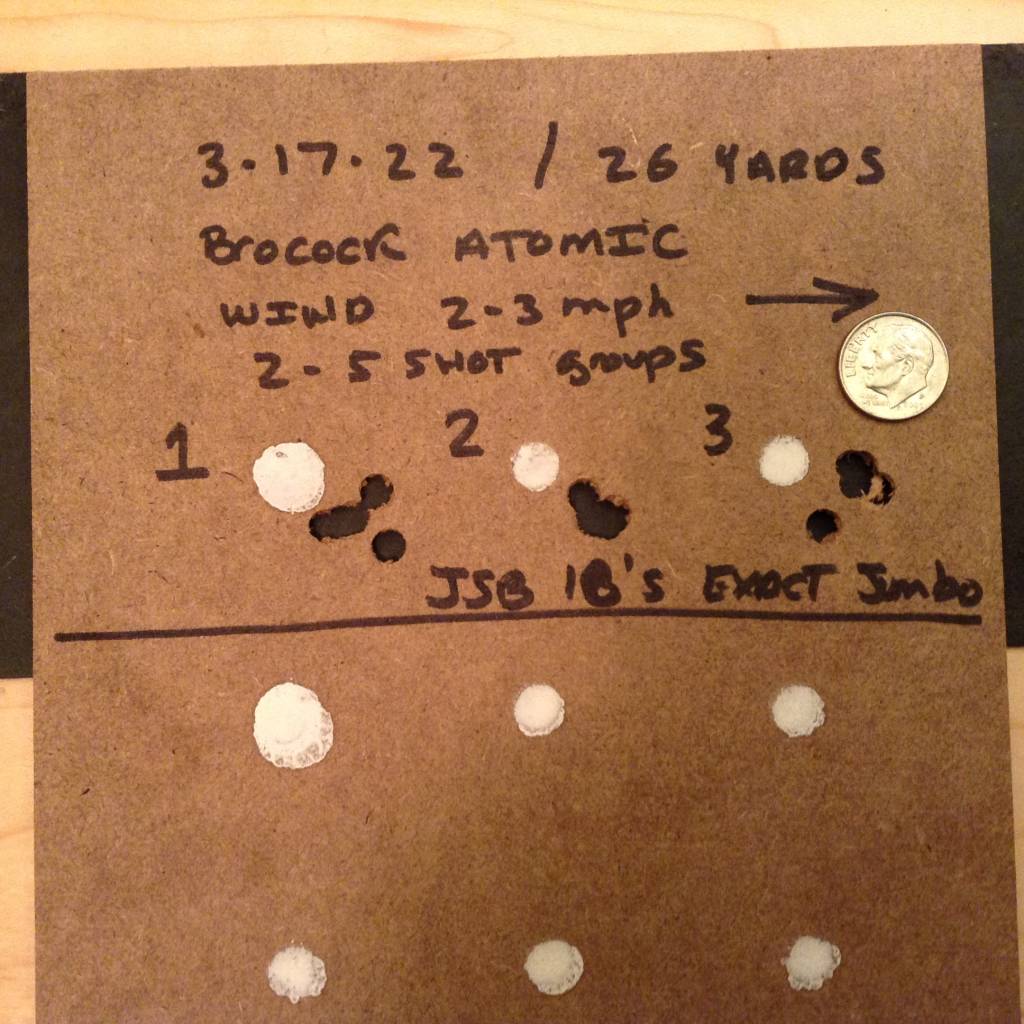 3·17·22 / 26 YARDS
Brocock ATOMIC
WIND 2-3 mph →
2-5 SHOT groups
LIBERTY
1 2 3
JSB 18's EXACT Jumbo